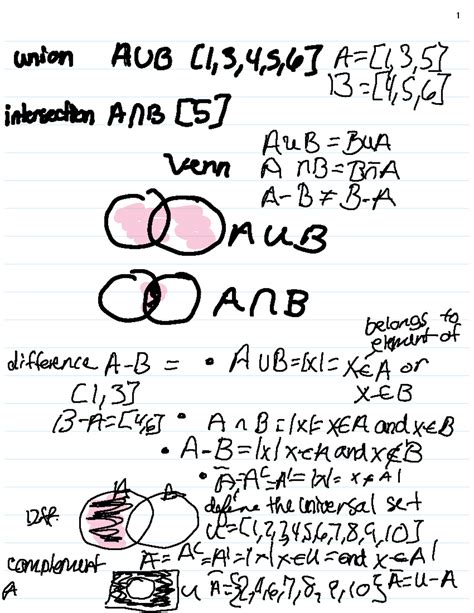 1
union A∪B [1,3,4,5,6] A=[1,3,5]
B=[4,5,6]
intersection A∩B [5]
A∪B=B∪A
Venn A∩B=B∩A
A-B≠B-A
A∪B
A∩B
belongs to
element of
difference A-B = • A∪B=|x|= x∈A or
[1,3] x∈B
B-A=[4,6] • A∩B=|x|=x∈A and x∈B
• A-B=|x|x∈A and x∉B
• Ā=Aᶜ=A'=|x|= x≠A|
A B define the universal set
Diff. U=[1,2,3,4,5,6,7,8,9,10]
complement Ā=Aᶜ=A'=|x|x∈U=and x∈A|
A U Ā=[2,4,6,7,8,9,10] Ā=U-A